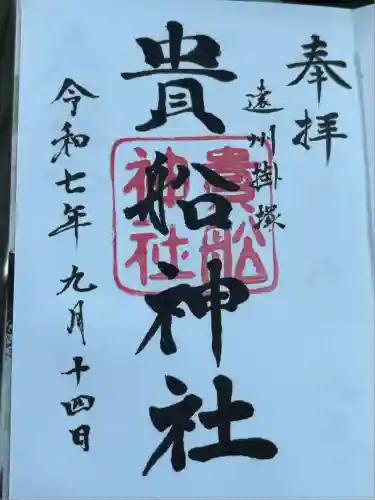 奉拝
遠州掛塚
貴船神社
貴船
神社
令和七年九月十四日